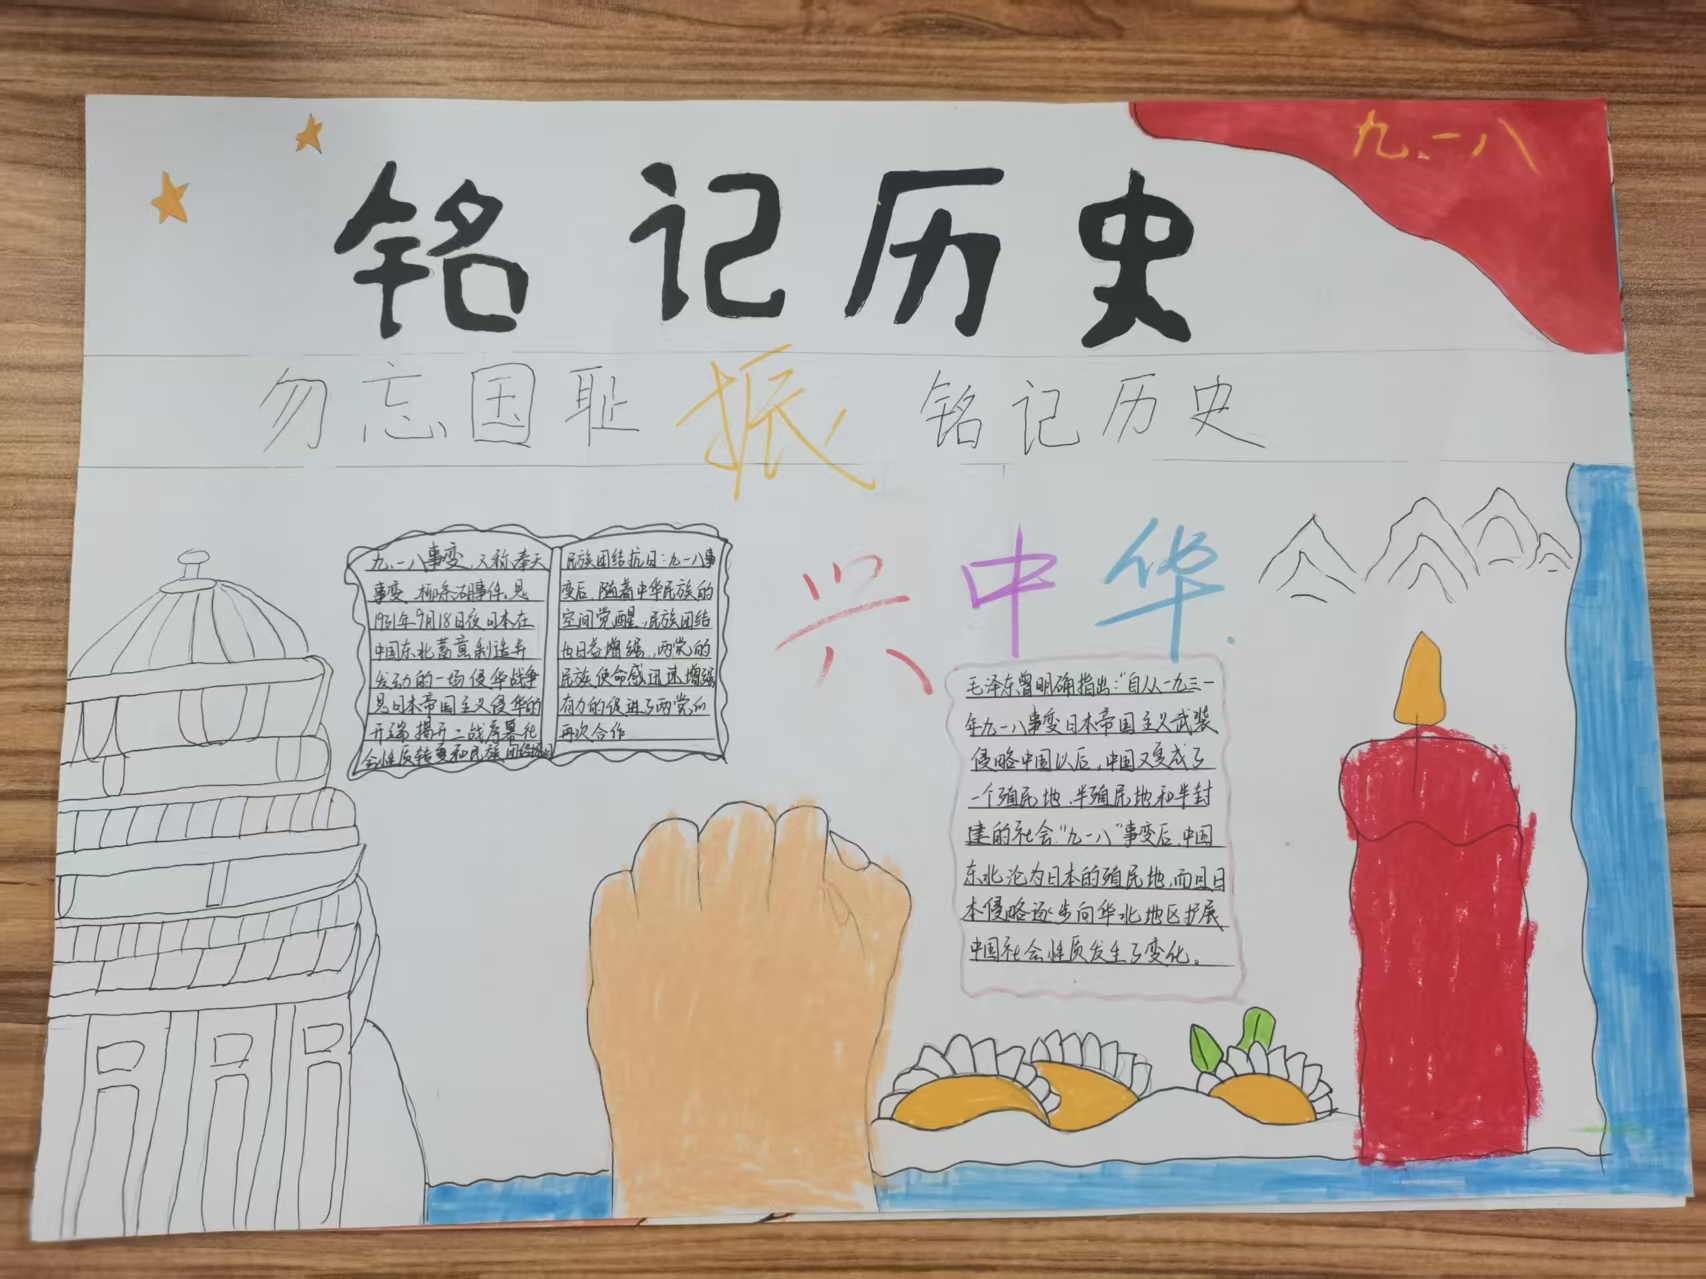 九.一八
铭记历史
勿忘国耻 振 铭记历史
兴中华.
九.一八事变,又称奉天
事变、柳条湖事件。是
1931年9月18日夜日本在
中国东北蓄意制造并
发动的一场侵华战争
是日本帝国主义侵华的
开端揭开二战序幕社
会性质转变和民族团结抗日
民族团结抗日:九一八事
变后,随着中华民族的
空间觉醒,民族团结
也日益增强,两党的
民族使命感迅速增强
有力的促进了两党的
再次合作
毛泽东曾明确指出:“自从一九三一
年九一八事变日本帝国主义武装
侵略中国以后,中国又变成了
一个殖民地、半殖民地和半封
建的社会.“九一八”事变后,中国
东北沦为日本的殖民地,而且日
本侵略逐步向华北地区扩展
中国社会性质发生了变化。